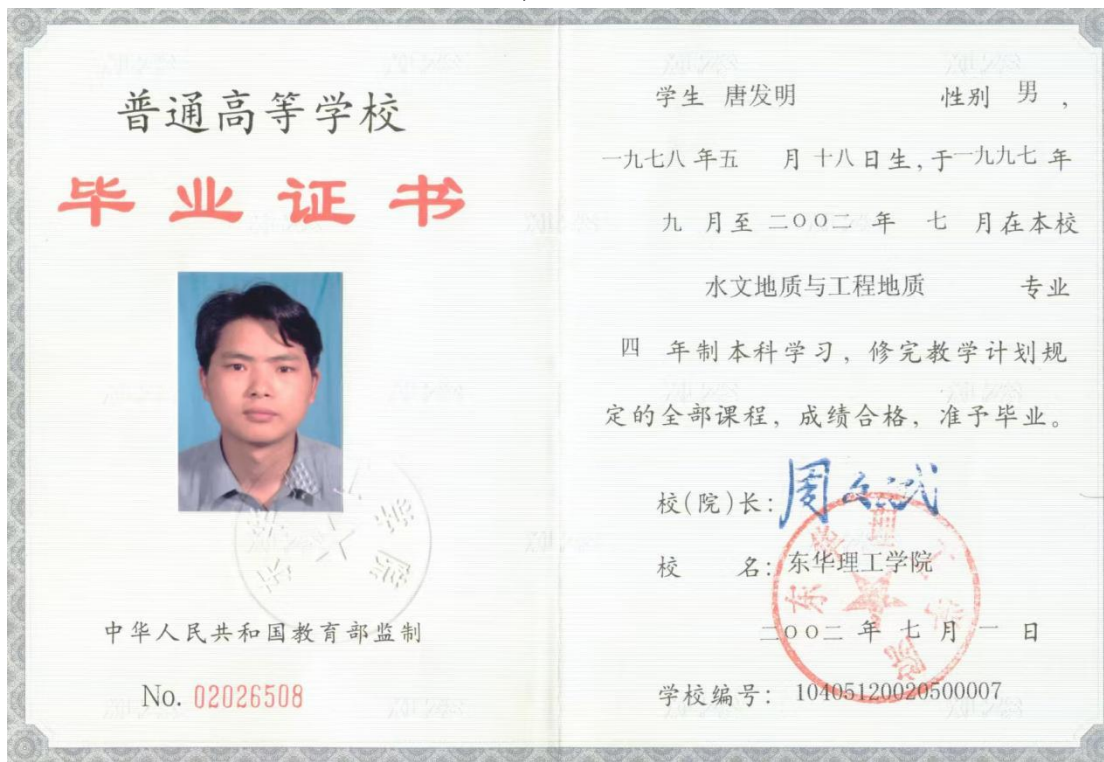 普通高等学校
毕业证书
中华人民共和国教育部监制
No. 02026508
学生 唐发明 性别 男 ,
一九七八 年五 月 十八 日生,于一九九七 年
九 月至 二〇〇二 年 七 月在本校
水文地质与工程地质 专业
四 年制本科学习，修完教学计划规
定的全部课程，成绩合格，准予毕业。
校(院)长:
校 名: 东华理工学院
二〇〇二 年 七 月 一 日
学校编号: 104051200205000​07
东华理工学院